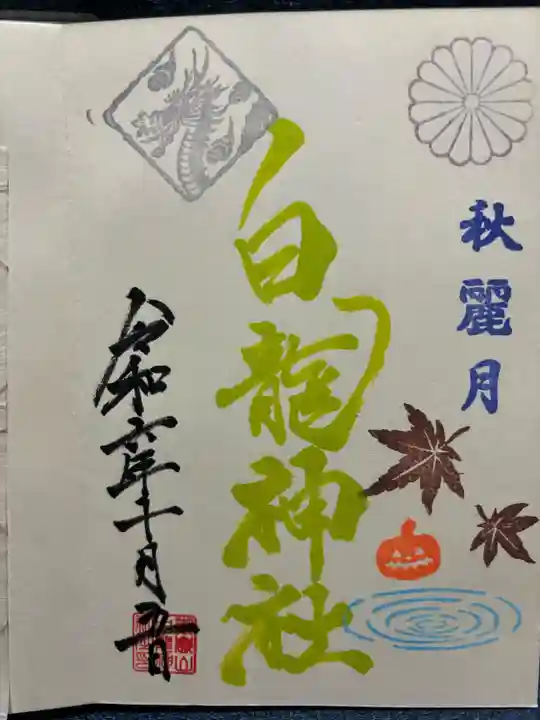 秋麗月
白龍神社
令和六年十月五日